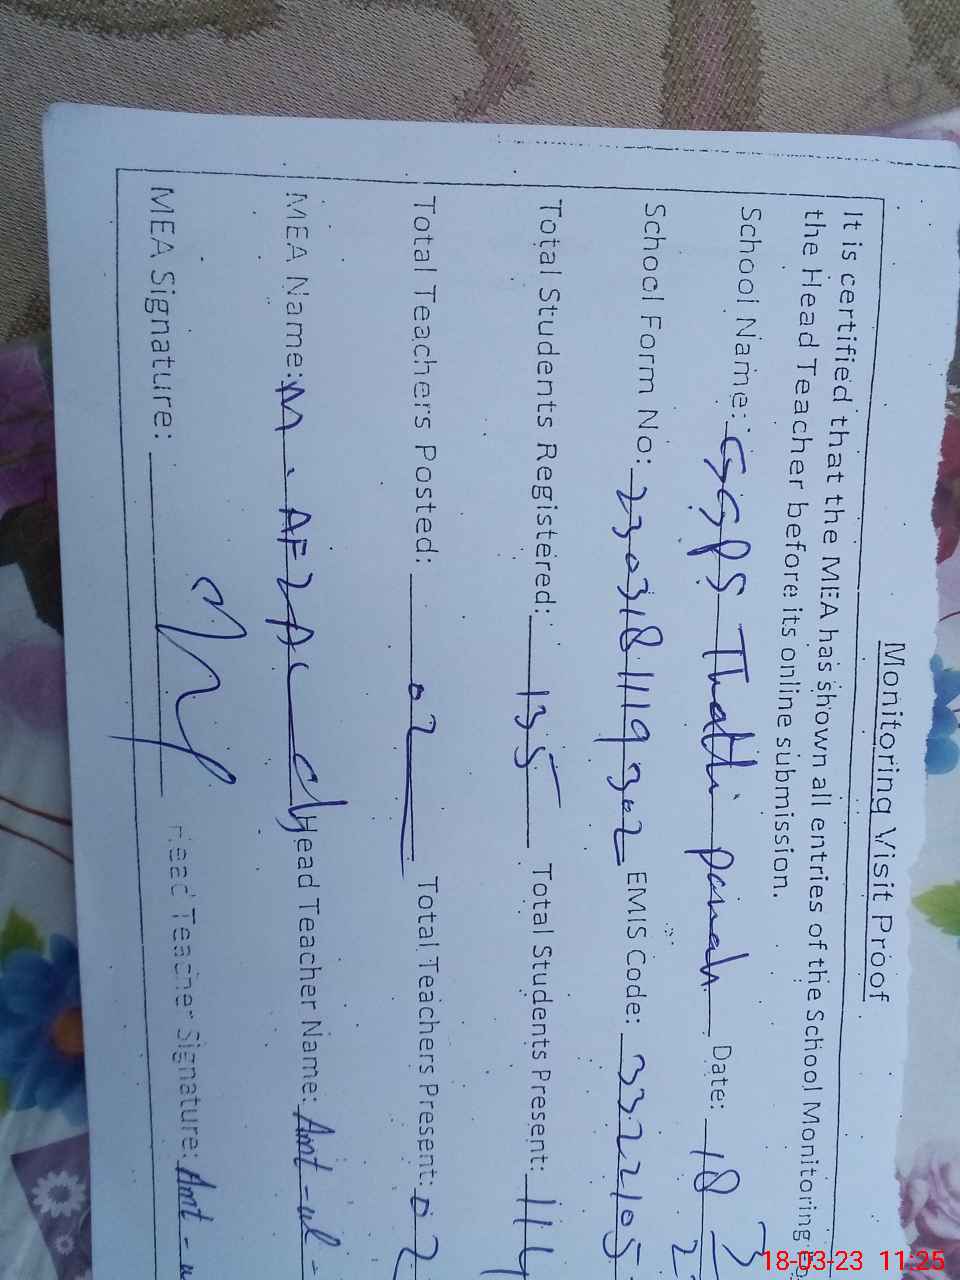 Monitoring Visit Proof
It is certified that the MEA has shown all entries of the School Monitoring
the Head Teacher before its online submission.
School Name: GGPS Thatti panah Date: 18 3
School Form No: 2303181119302 EMIS Code: 3322105
Total Students Registered: 135 Total Students Present: 114
Total Teachers Posted: 02 Total Teachers Present: 02
MEA Name: M. AFZAL Head Teacher Name: Amt-ul-
MEA Signature: Head Teacher Signature: Amt-
18-03-23 11:25